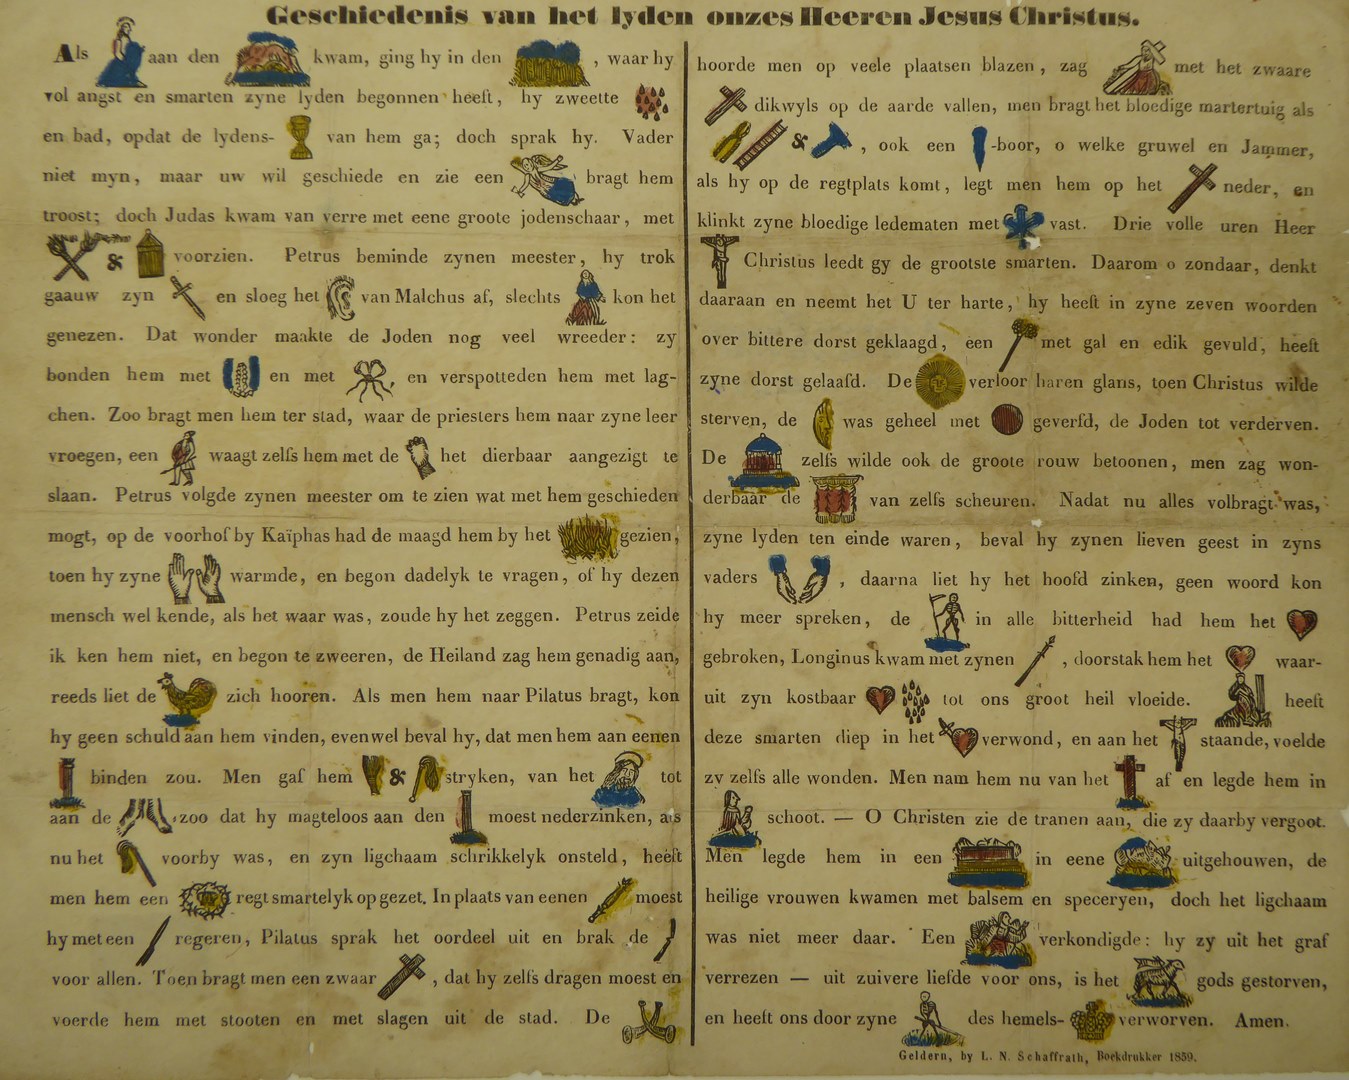 Geschiedenis van het lyden onzes Heeren Jesus Christus.
Als aan den kwam, ging hy in den , waar hy
vol angst en smarten zyne lyden begonnen heeft, hy zweette
en bad, opdat de lydens- van hem ga; doch sprak hy. Vader
niet myn, maar uw wil geschiede en zie een bragt hem
troost; doch Judas kwam van verre met eene groote jodenschaar, met
& voorzien. Petrus beminde zynen meester, hy trok
gaauw zyn en sloeg het van Malchus af, slechts kon het
genezen. Dat wonder maakte de Joden nog veel wreeder: zy
bonden hem met en met , en verspotteden hem met lag-
chen. Zoo bragt men hem ter stad, waar de priesters hem naar zyne leer
vroegen, een waagt zelfs hem met de het dierbaar aangezigt te
slaan. Petrus volgde zynen meester om te zien wat met hem geschieden
mogt, op de voorhof by Kaïphas had de maagd hem by het gezien,
toen hy zyne warmde, en begon dadelyk te vragen, of hy dezen
mensch wel kende, als het waar was, zoude hy het zeggen. Petrus zeide
ik ken hem niet, en begon te zweeren, de Heiland zag hem genadig aan,
reeds liet de zich hooren. Als men hem naar Pilatus bragt, kon
hy geen schuld aan hem vinden, evenwel beval hy, dat men hem aan eenen
binden zou. Men gaf hem & stryken, van het tot
aan de , zoo dat hy magteloos aan den moest nederzinken, als
nu het voorby was, en zyn ligchaam schrikkelyk onsteld, heeft
men hem een regt smartelyk op gezet. In plaats van eenen moest
hy met een regeren, Pilatus sprak het oordeel uit en brak de
voor allen. Toen bragt men een zwaar , dat hy zelfs dragen moest en
voerde hem met stooten en met slagen uit de stad. De
hoorde men op veele plaatsen blazen, zag met het zwaare
dikwyls op de aarde vallen, men bragt het bloedige martertuig als
& , ook een -boor, o welke gruwel en Jammer,
als hy op de regtplats komt, legt men hem op het neder, en
klinkt zyne bloedige ledematen met vast. Drie volle uren Heer
Christus leedt gy de grootste smarten. Daarom o zondaar, denkt
daaraan en neemt het U ter harte, hy heeft in zyne zeven woorden
over bittere dorst geklaagd, een met gal en edik gevuld, heeft
zyne dorst gelaafd. De verloor haren glans, toen Christus wilde
sterven, de was geheel met geverfd, de Joden tot verderven.
De zelfs wilde ook de groote rouw betoonen, men zag won-
derbaar de van zelfs scheuren. Nadat nu alles volbragt was,
zyne lyden ten einde waren, beval hy zynen lieven geest in zyns
vaders , daarna liet hy het hoofd zinken, geen woord kon
hy meer spreken, de in alle bitterheid had hem het
gebroken, Longinus kwam met zynen , doorstak hem het waar-
uit zyn kostbaar tot ons groot heil vloeide. heeft
deze smarten diep in het verwond, en aan het staande, voelde
zy zelfs alle wonden. Men nam hem nu van het af en legde hem in
schoot. — O Christen zie de tranen aan, die zy daarby vergoot.
Men legde hem in een in eene uitgehouwen, de
heilige vrouwen kwamen met balsem en speceryen, doch het ligchaam
was niet meer daar. Een verkondigde: hy zy uit het graf
verrezen — uit zuivere liefde voor ons, is het gods gestorven,
en heeft ons door zyne des hemels- verworven. Amen.
Geldern, by L. N. Schaffrath, Boekdrukker 1859.